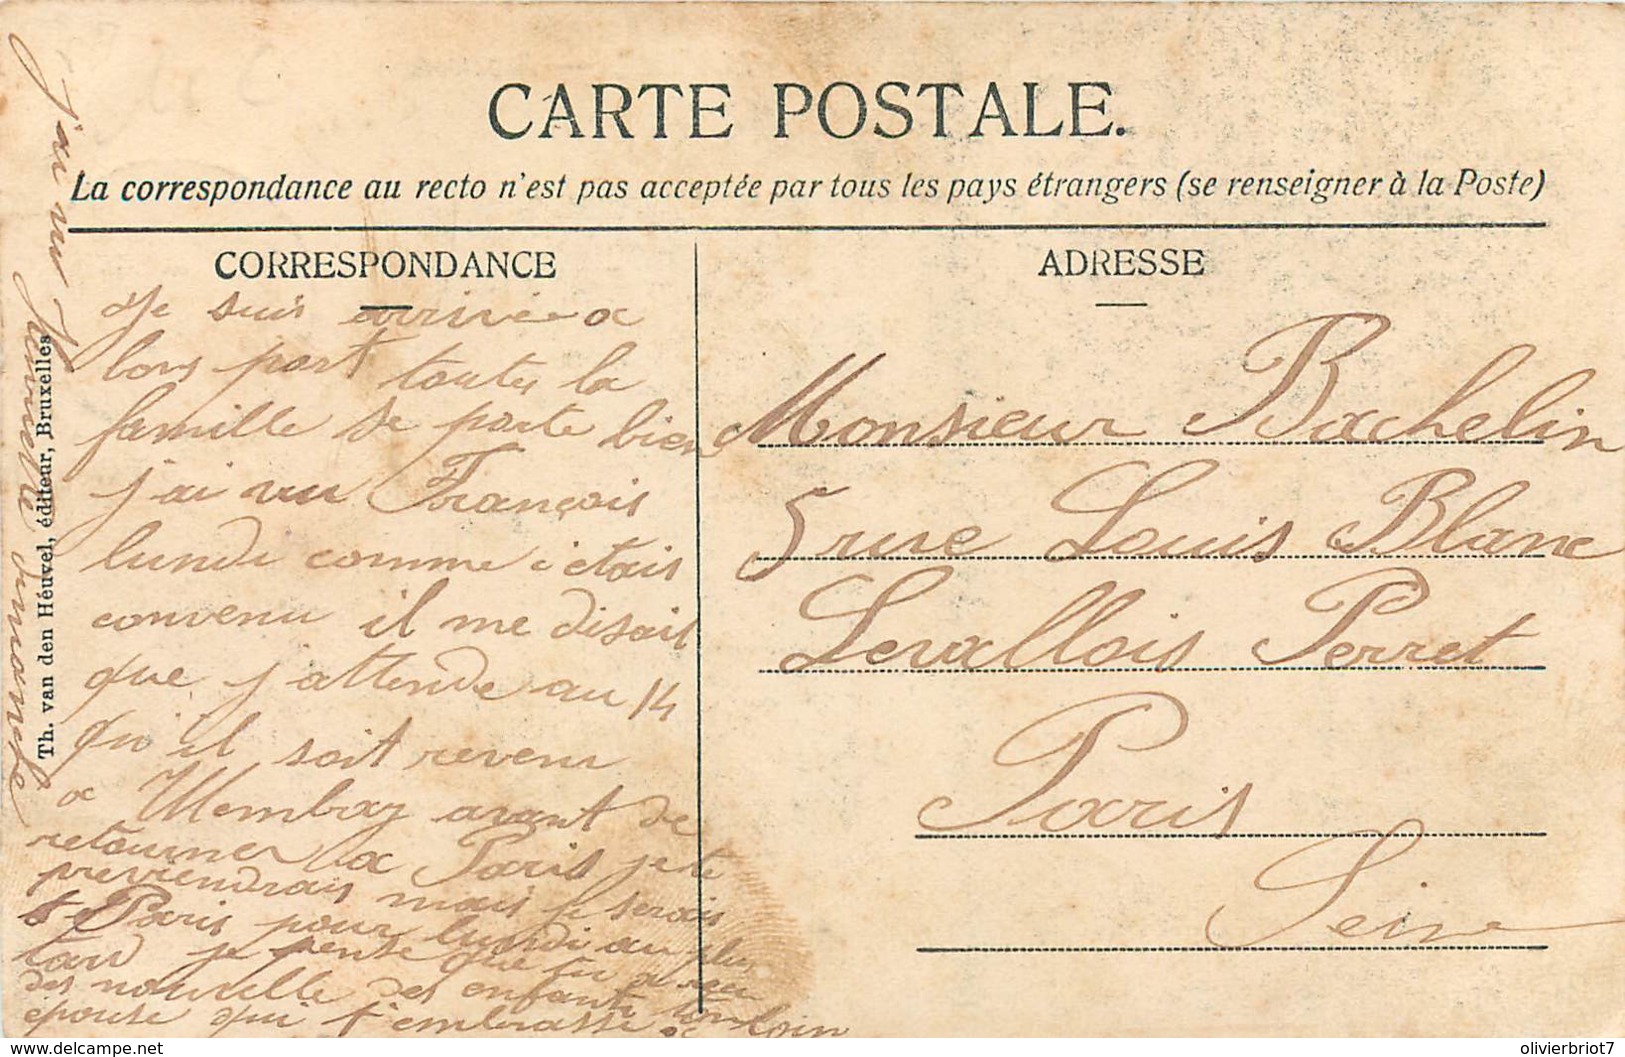 CARTE POSTALE.
La correspondance au recto n'est pas acceptée par tous les pays étrangers (se renseigner à la Poste)
CORRESPONDANCE
Je suis arrivée a
bors port toutes la
famille se porte bien
j'ai vu François
lundi comme i etais
convenu il me disait
que j'attende au 14
qu'il soit revenu
a avant de
retourner a Paris je te
previendrais mais je serais
Paris pour lundi au plus
tard je pense que tu a reçu
des nouvelle des enfants
épouse qui t'embrasse de loin
j'ai vu dimanche
Th. van den Heuvel, éditeur, Bruxelles
ADRESSE
Monsieur Bachelin
5 rue Louis Blanc
Levallois Perret
Paris
Seine
delcampe.net
olivierbriot7